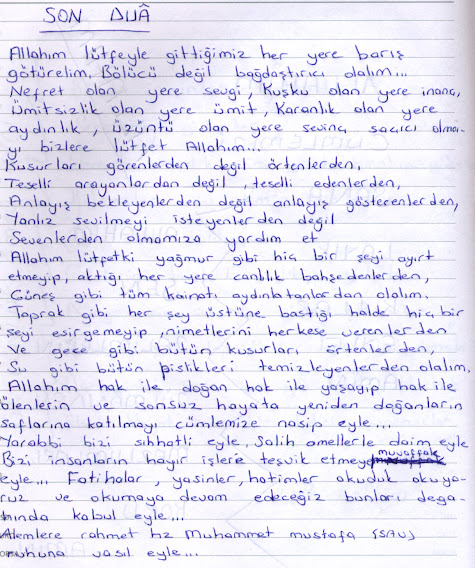 SON DUÂ
Allahım lütfeyle gittiğimiz her yere barış
götürelim. Bölücü değil bağdaştırıcı olalım...
Nefret olan yere sevgi, Kuşku olan yere inanç,
Ümitsizlik olan yere ümit, Karanlık olan yere
aydınlık, üzüntü olan yere sevinç saçıcı olma-
yı bizlere lütfet Allahım...
Kusurları görenlerden değil örtenlerden,
Teselli arayanlardan değil, teselli edenlerden,
Anlayış bekleyenlerden değil anlayış gösterenlerden,
Yanlız sevilmeyi isteyenlerden değil
Sevenlerden olmamıza yardım et
Allahım lütfetki yağmur gibi hiç bir şeyi ayırt
etmeyip, aktığı her yere canlılık bahşedenlerden,
Güneş gibi tüm kainatı aydınlatanlardan olalım.
Toprak gibi her şey üstüne bastığı halde hiç bir
şeyi esirgemeyip, nimetlerini herkese verenlerden
Ve gece gibi bütün kusurları örtenlerden,
Su gibi bütün pislikleri temizleyenlerden olalım.
Allahım hak ile doğan hak ile yaşayıp hak ile
ölenlerin ve sonsuz hayata yeniden doğanların
saflarına katılmayı cümlemize nasip eyle...
Yarabbi bizi sıhhatli eyle, Salih amellerle daim eyle
Bizi insanların hayır işlere teşvik etmeye muvaffak
eyle... Fatihalar, yasinler, hatimler okuduk okuyo-
ruz ve okumaya devam edeceğiz bunları derga-
hında kabul eyle...
Alemlere rahmet hz Muhammet mustafa (SAV)
ruhuna vasıl eyle...